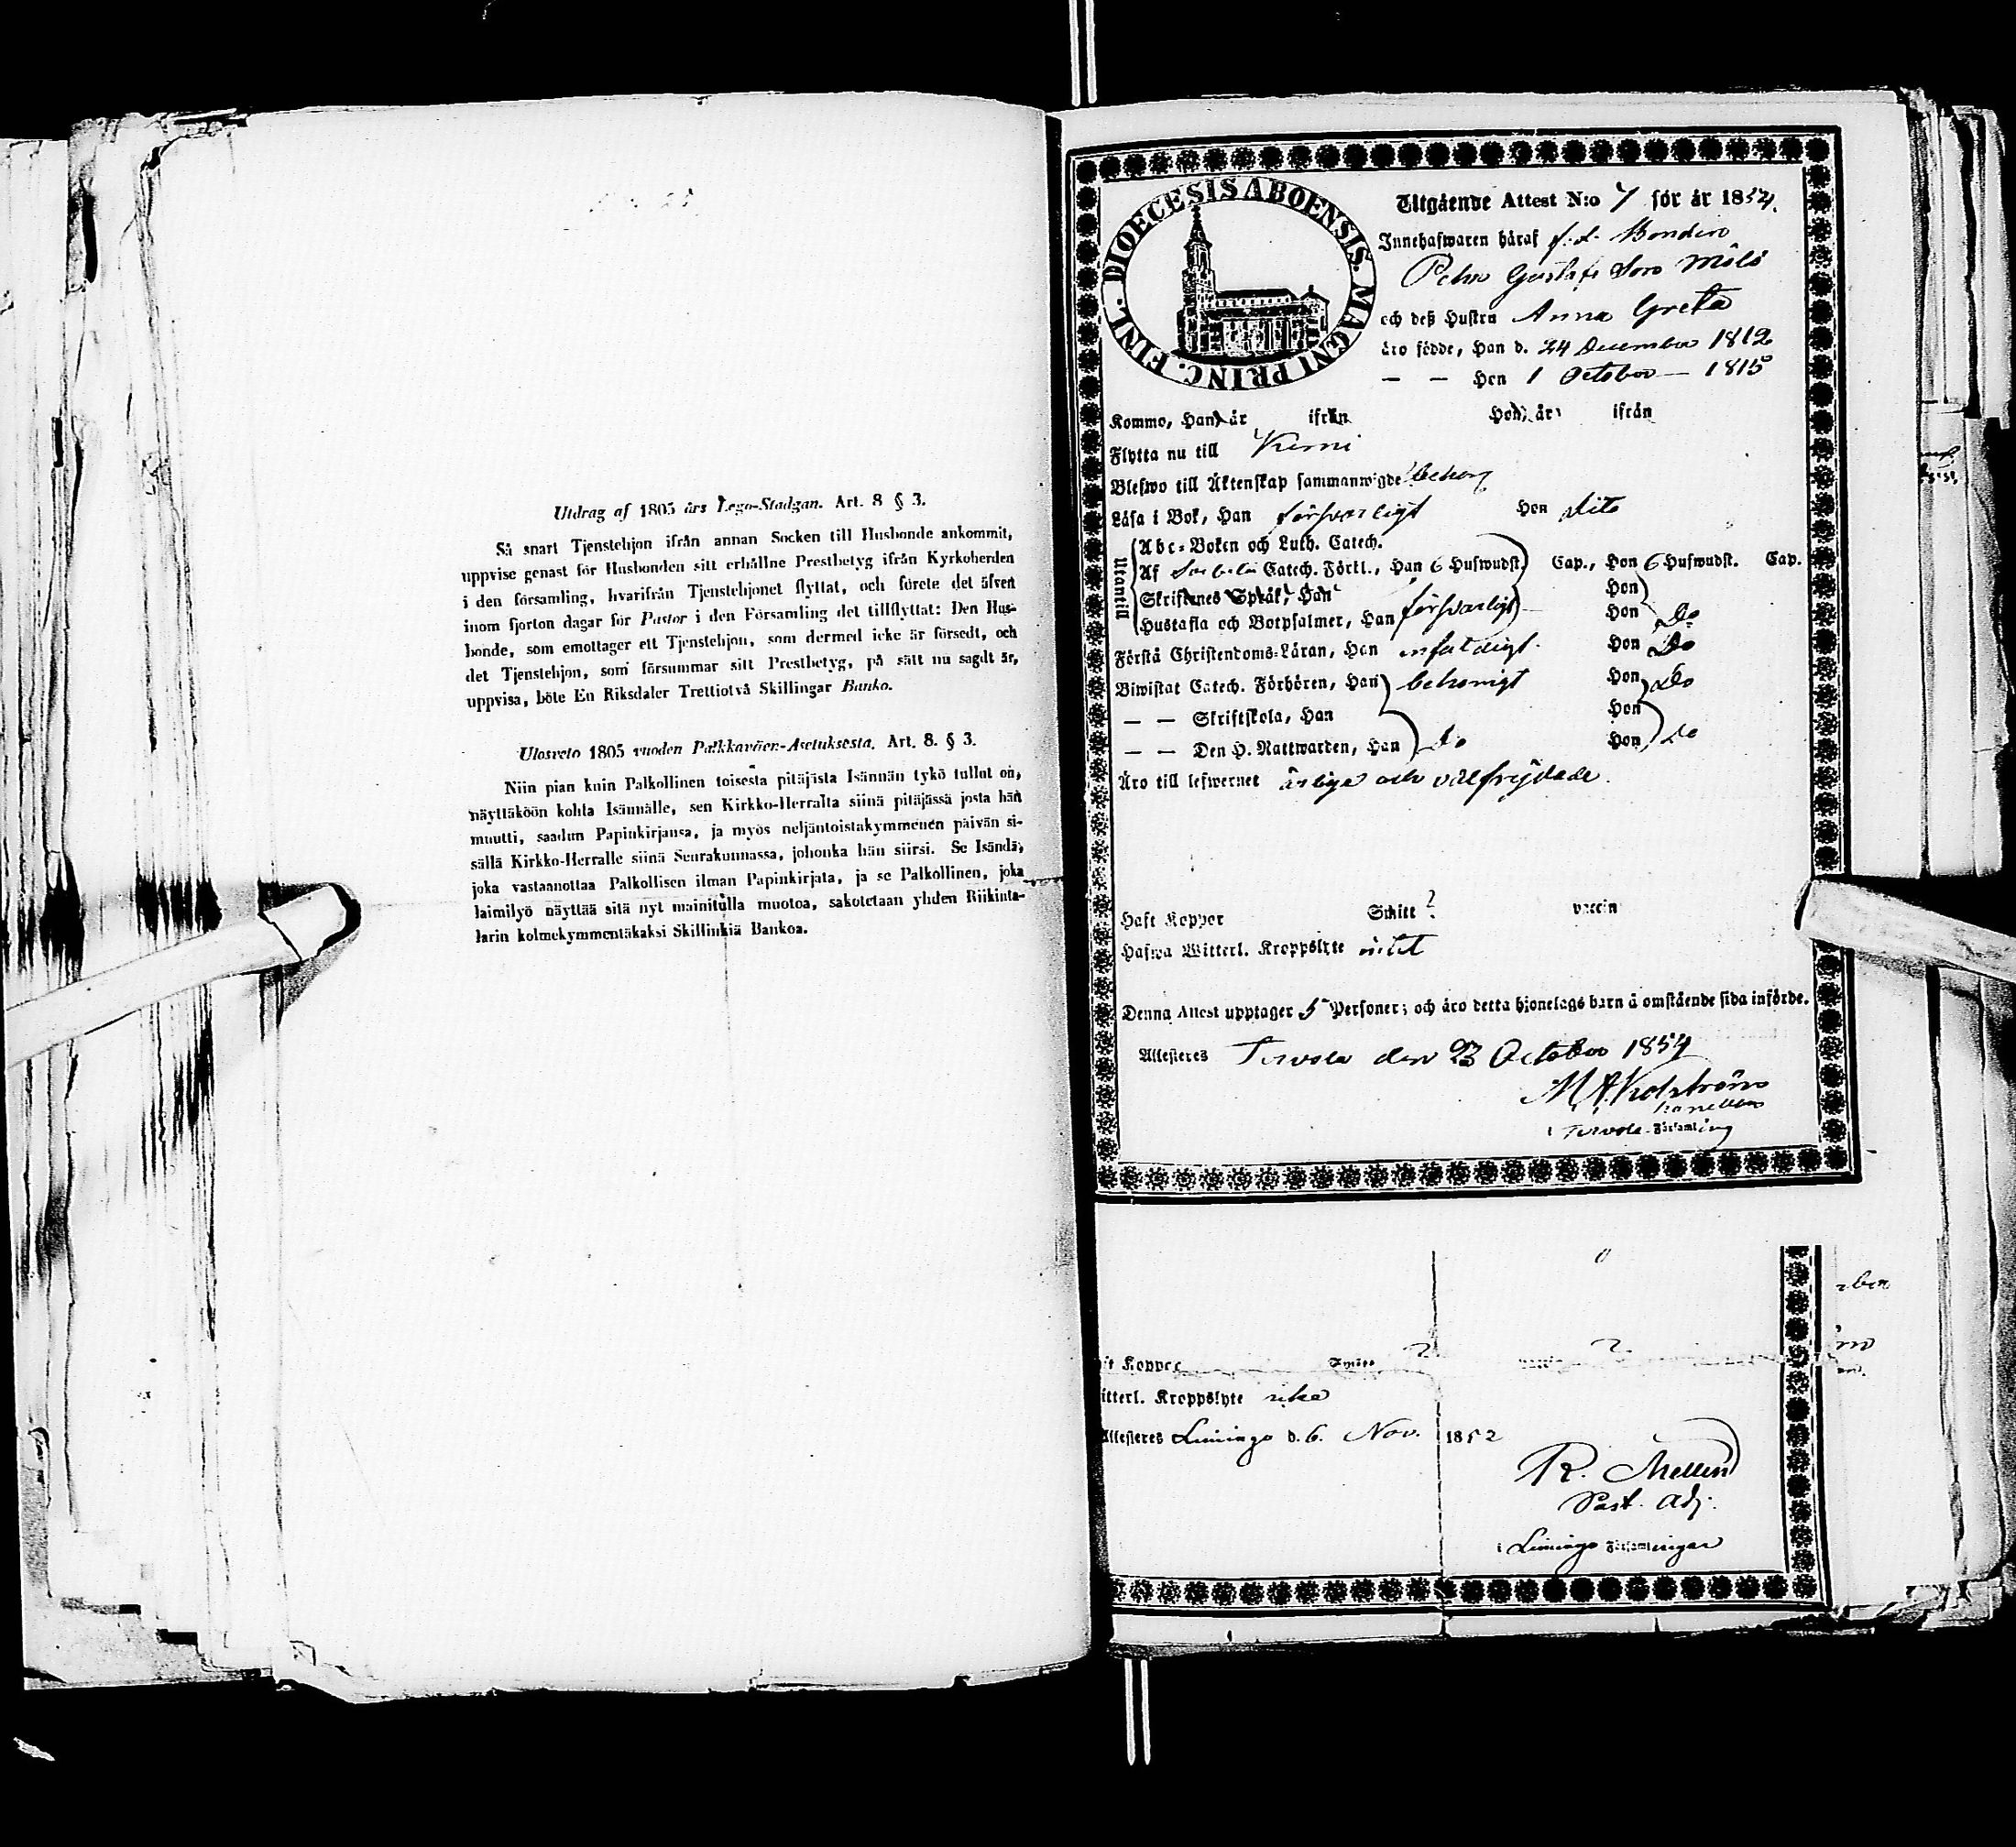 Utdrag af 1805 års Lego-Stadgan. Art. 8 § 3.
Så snart Tjenstehjon ifrån annan Socken till Husbonde ankommit,
uppvise genast för Husbonden sitt erhållne Prestbetyg ifrån Kyrkoherden
i den församling, hvarifrån Tjenstehjonet flyttat, och förete det äfven
inom fjorton dagar för Pastor i den Församling det tillflyttat: Den Hus-
bonde, som emottager ett Tjenstehjon, som dermed icke är försedt, och
det Tjenstehjon, som försummar sitt Prestbetyg, på sätt nu sagdt är,
uppvisa, böte En Riksdaler Trettiotvå Skillingar Banko.
Ulosveto 1805 vuoden Palkkaväen-Asetuksesta. Art. 8. § 3.
Niin pian kuin Palkollinen toisesta pitäjästa Isännän tykö tullut on,
näyttäköön kohta Isännälle, sen Kirkko-Herralta siinä pitäjässä josta hän
muutti, saadun Papinkirjansa, ja myös neljäntoistakymmenen päivän si-
sällä Kirkko-Herralle siinä Seurakunnassa, johonka hän siirsi. Se Isändä,
joka vastaanottaa Palkollisen ilman Papinkirjata, ja se Palkollinen, joka
laimilyö näyttää sitä nyt mainitulla muotoa, sakotetaan yhden Riikinta-
larin kolmekymmentäkaksi Skillinkiä Bankoa.
DIOECESIS ABOENSIS. MAGNI PRINC. FINL.
Utgående Attest N:o 7 för år 1854.
Innehafwaren häraf f.d. Bonden
Petter Gustafs Son
och deß Hustru Anna Greta
äro födde, Han d. 24 December 1812
— — Hon 1 October — 1815
Kommo, Han, år ifrån Hon, år ifrån
Flytta nu till Kemi
Blefwo till Äktenskap sammanwigde
Läsa i Bok, Han försvarligt Hon dito
Utantill
Abc-Boken och Luth. Catech.
Af Svebelii Catech. Förkl., Han 6 Hufwudst. Cap., Hon 6 Hufwudst. Cap.
Skriftenes Språk, Han Hon
Hustafla och Botpsalmer, Han försvarligt Hon Do
Förstå Christendoms-Läran, Han enfaldigt. Hon Do
Biwistat Catech. Förhören, Han behörigt Hon Do
— — Skriftskola, Han Hon
— — Den H. Nattwarden, Han Do Hon Do
Äro till lefwernet ärliga och välfrejdade.
Haft Koppor Skitt ? vaccin
Hafwa Witterl. Kroppslyte intet
Denna Attest upptager 5 Personer; och äro detta hjonelags barn å omstående sida införde.
Attesteres Tervola den 23 October 1854
i Tervola Församling
ft Koppor ? ?
itterl. Kroppslyte icke
Attesteres Limingo d. 6. Nov. 1852
R. Mellin
Past. Adj.
i Limingo Församlingar